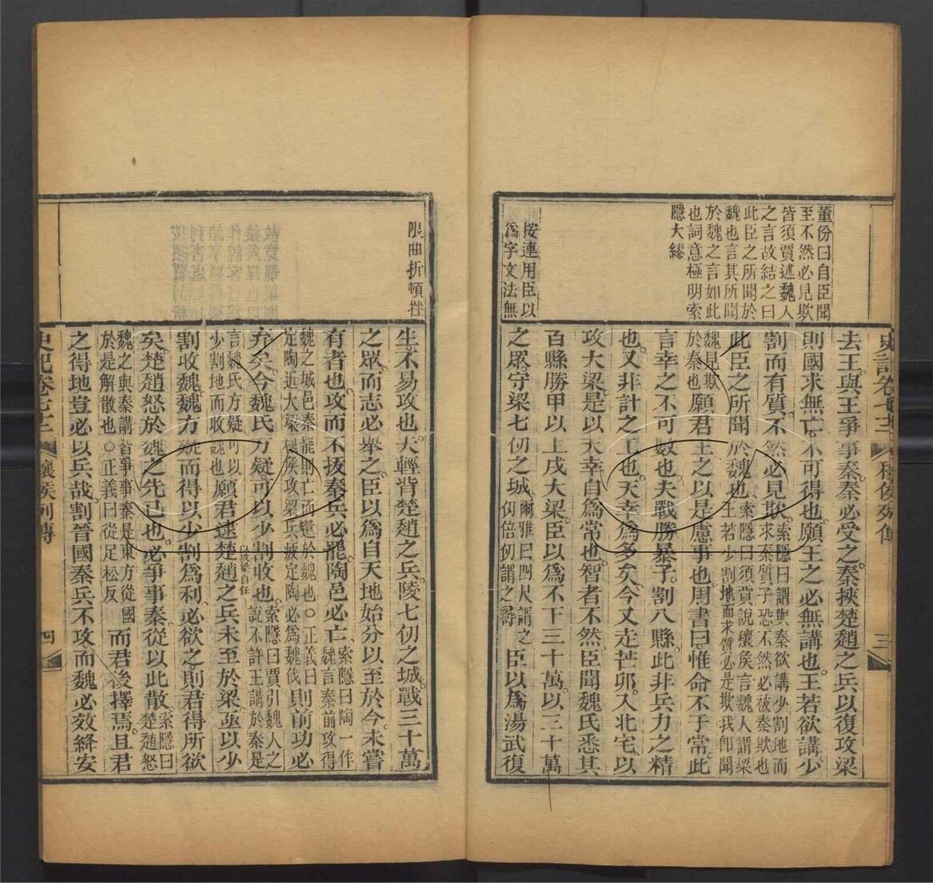 董份曰自臣聞
至不然必見欺
皆須賈述魏人
之言故結之曰
此臣之所聞於
魏也言其所聞
於魏之言如此
也詞意極明索
隱大繆
按連用臣以
爲字文法無
史記卷七十二 穰侯列傳 三
去王與王爭事秦秦必受之秦挾楚趙之兵以復攻梁
則國求無亡不可得也願王之必無講也王若欲講少
割而有質不然必見欺索隱曰謂與秦欲講少割地而
求秦質子恐不然必被秦欺也
此臣之所聞於魏也索隱曰須賈說穰侯言魏人謂梁
王若少割地而求質必是欺我卽聞
魏見欺
於秦也願君王之以是慮事也周書曰惟命不于常此
言幸之不可數也夫戰勝暴子割八縣此非兵力之精
也又非計之工也天幸爲多矣今又走芒卯入北宅以
攻大梁是以天幸自爲常也智者不然臣聞魏氏悉其
百縣勝甲以上戍大梁臣以爲不下三十萬以三十萬
之眾守梁七仞之城爾雅曰四尺謂之
仞倍仞謂之尋臣以爲湯武復
限曲折頓挫
生不易攻也夫輕背楚趙之兵陵七仞之城戰三十萬
之眾而志必舉之臣以爲自天地始分以至於今未嘗
有者也攻而不拔秦兵必罷陶邑必亡索隱曰陶一作
魏言秦前攻得
魏之城邑秦罷則亡而還於魏也○正義曰
定陶近大梁穰侯攻梁兵疲定陶必爲魏伐則前功必
弃矣今魏氏方疑可以少割收也索隱曰賈引魏人之
說不許王講於秦是
言魏氏方疑可以
少割地而收也願君逮楚趙之兵未至於梁亟以少
割收魏魏方疑而得以少割爲利必欲之則君得所欲
矣楚趙怒於魏之先己也必爭事秦從以此散索隱曰
楚趙怒
魏之與秦講皆爭事秦是東方從國
於是解散也○正義曰從足松反而君後擇焉且君
之得地豈必以兵哉割晉國秦兵不攻而魏必效絳安
史記卷七十二 穰侯列傳 四